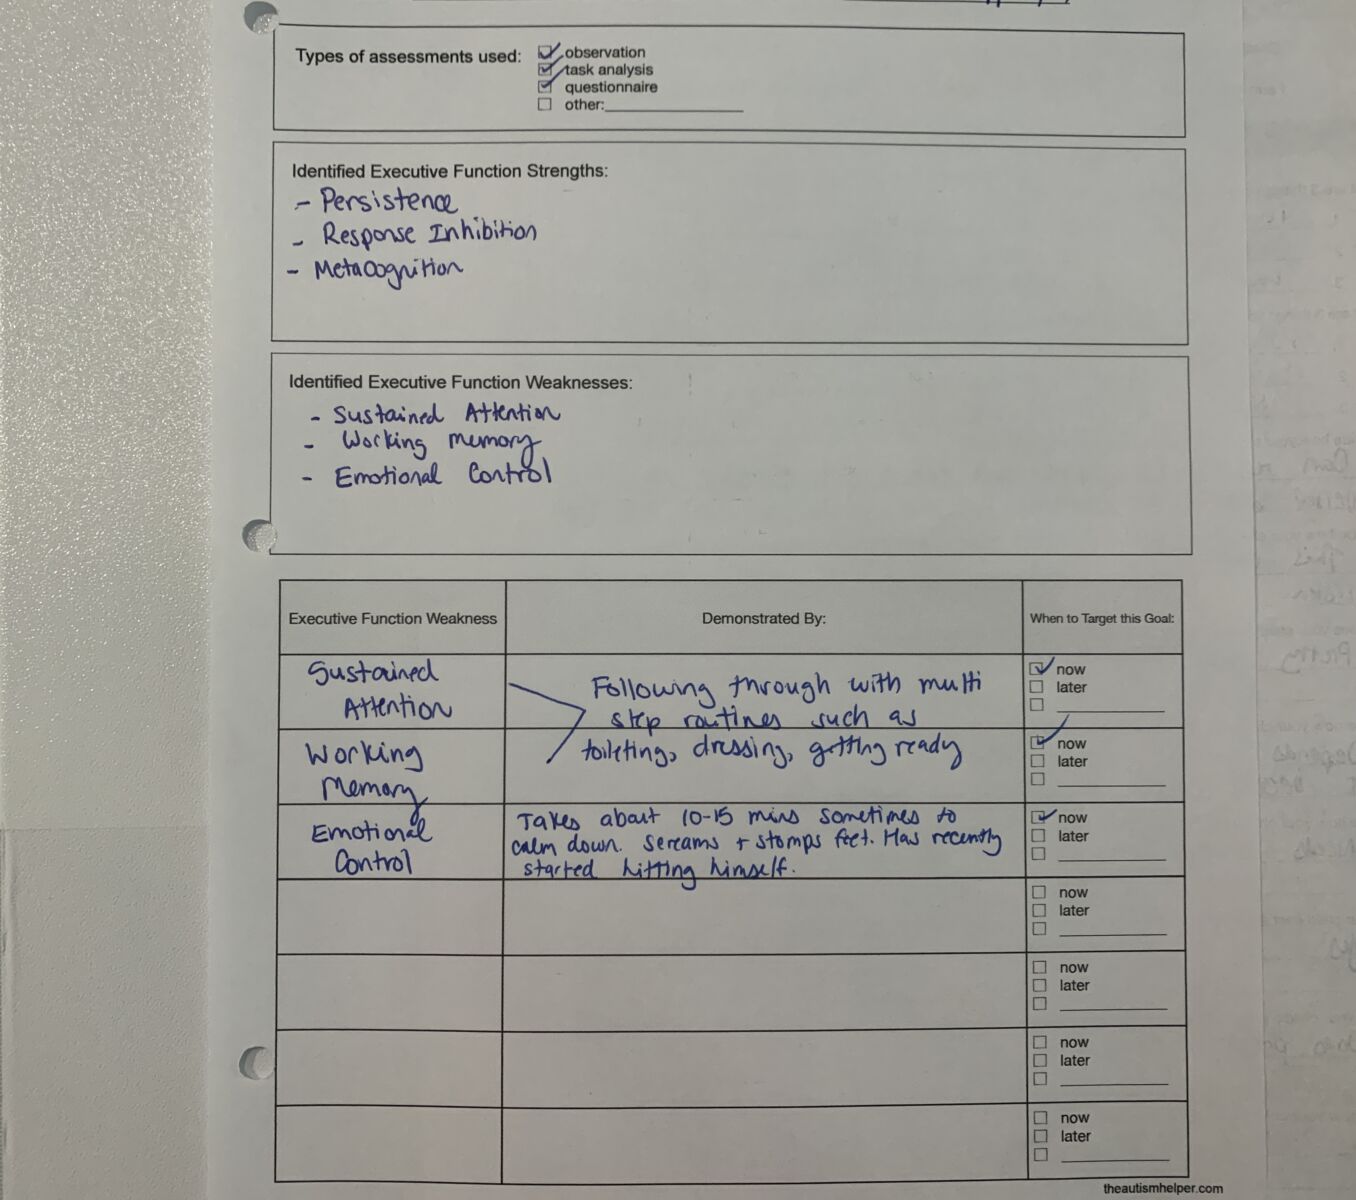 Types of assessments used:
observation
task analysis
questionnaire
other:
Identified Executive Function Strengths:
- Persistence
- Response Inhibition
- Metacognition
Identified Executive Function Weaknesses:
- Sustained Attention
- Working memory
- Emotional Control
Executive Function Weakness
Demonstrated By:
When to Target this Goal:
Sustained
Attention
Following through with multi
step routines such as
toileting, dressing, getting ready
now
later
Working
Memory
now
later
Emotional
Control
Takes about 10-15 mins sometimes to
calm down. Screams + stomps feet. Has recently
started hitting himself.
now
later
now
later
now
later
now
later
now
later
theautismhelper.com